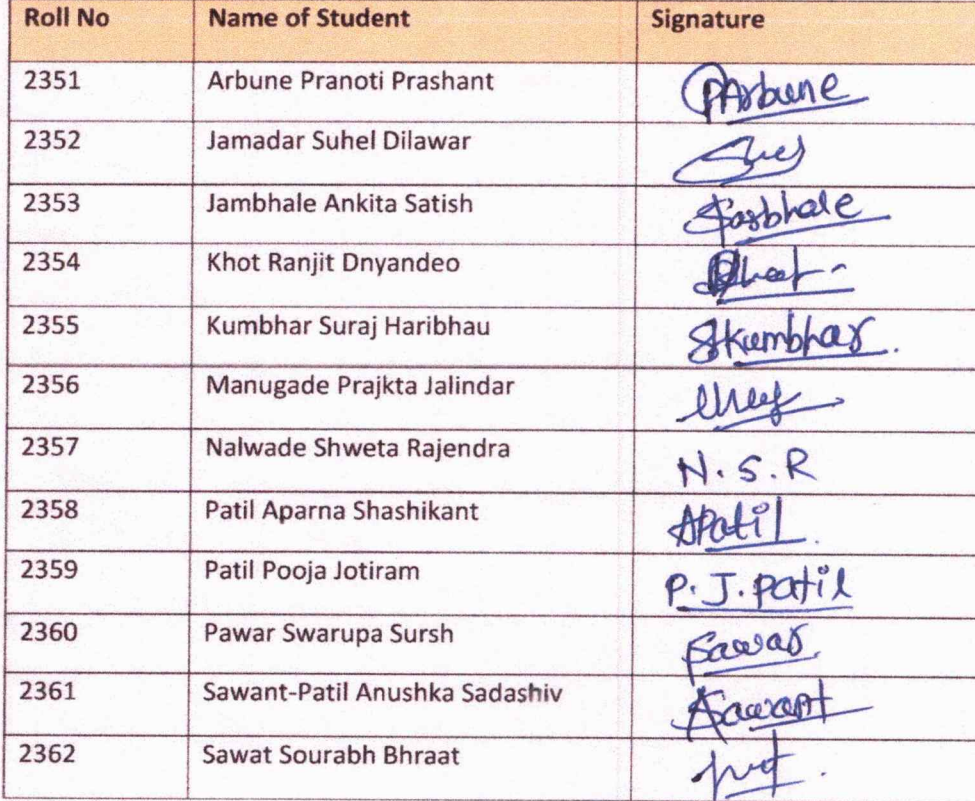 Roll No Name of Student Signature
2351 Arbune Pranoti Prashant PArbune
2352 Jamadar Suhel Dilawar
2353 Jambhale Ankita Satish
2354 Khot Ranjit Dnyandeo
2355 Kumbhar Suraj Haribhau SHKumbhar.
2356 Manugade Prajkta Jalindar
2357 Nalwade Shweta Rajendra N.S.R
2358 Patil Aparna Shashikant APatil.
2359 Patil Pooja Jotiram P.J.Patil
2360 Pawar Swarupa Sursh
2361 Sawant-Patil Anushka Sadashiv ASawant
2362 Sawat Sourabh Bhraat